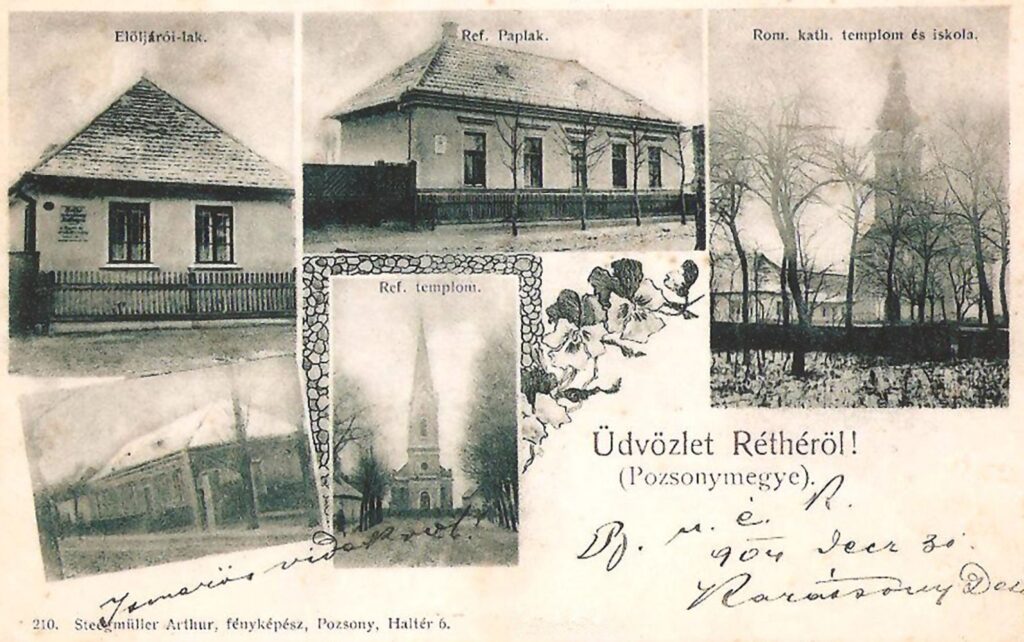 Előljárói-lak.
Ref. Paplak.
Rom. kath. templom és iskola.
Ref. templom.
Üdvözlet Réthéröl!
(Pozsonymegye).
B. u. é. K.
904 Decz 30.
Ismerős vidék volt.
210. Steegmüller Arthur, fényképész, Pozsony, Haltér 6.